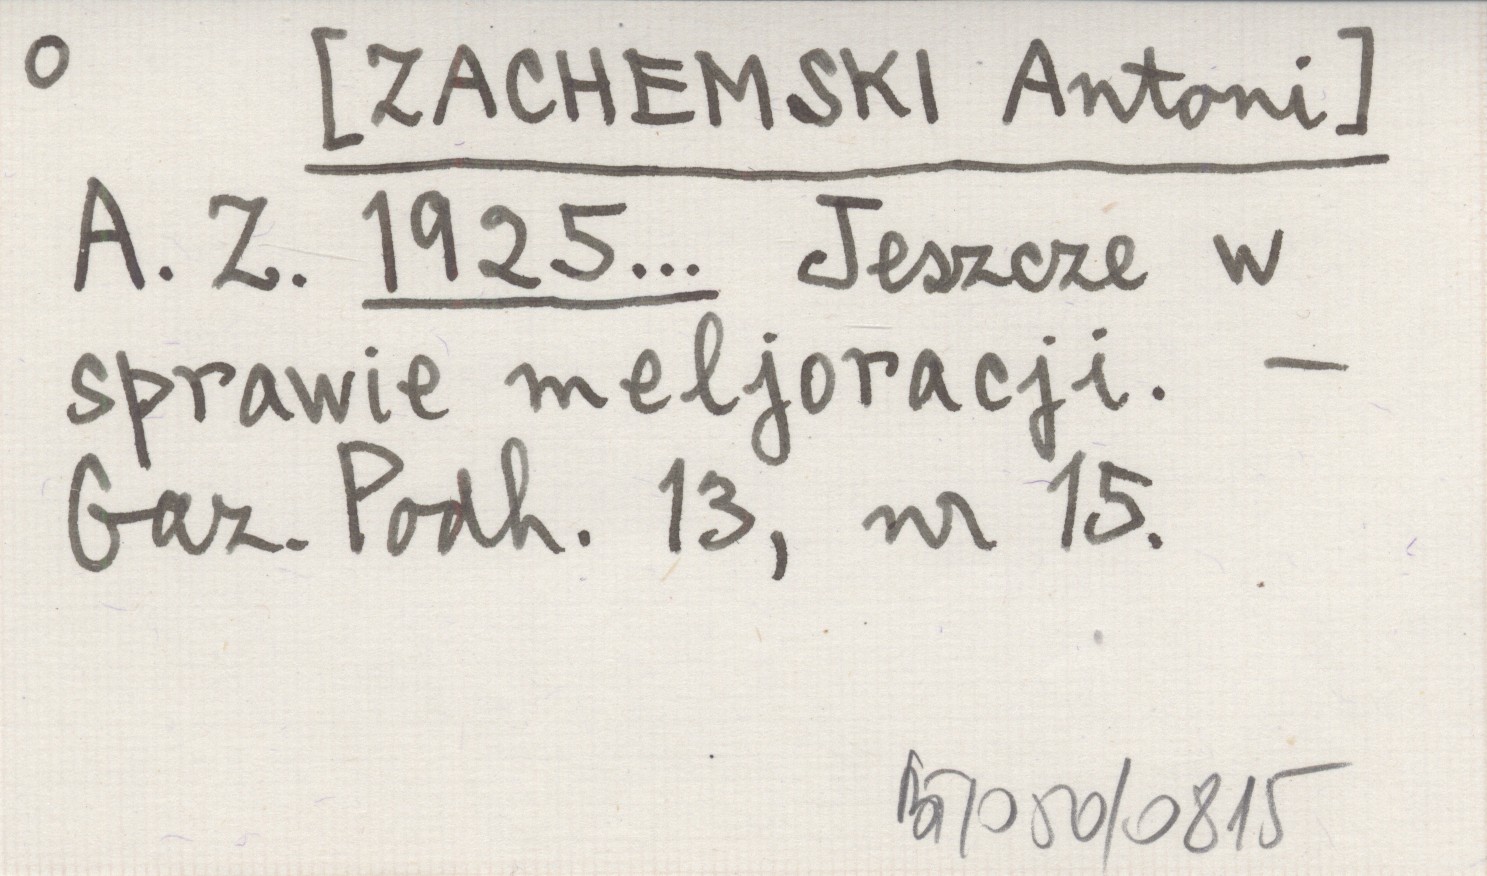 o [ZACHEMSKI Antoni]
A. Z. 1925... Jeszcze w
sprawie meljoracji. —
Gaz. Podh. 13, nr 15.
/050/0815